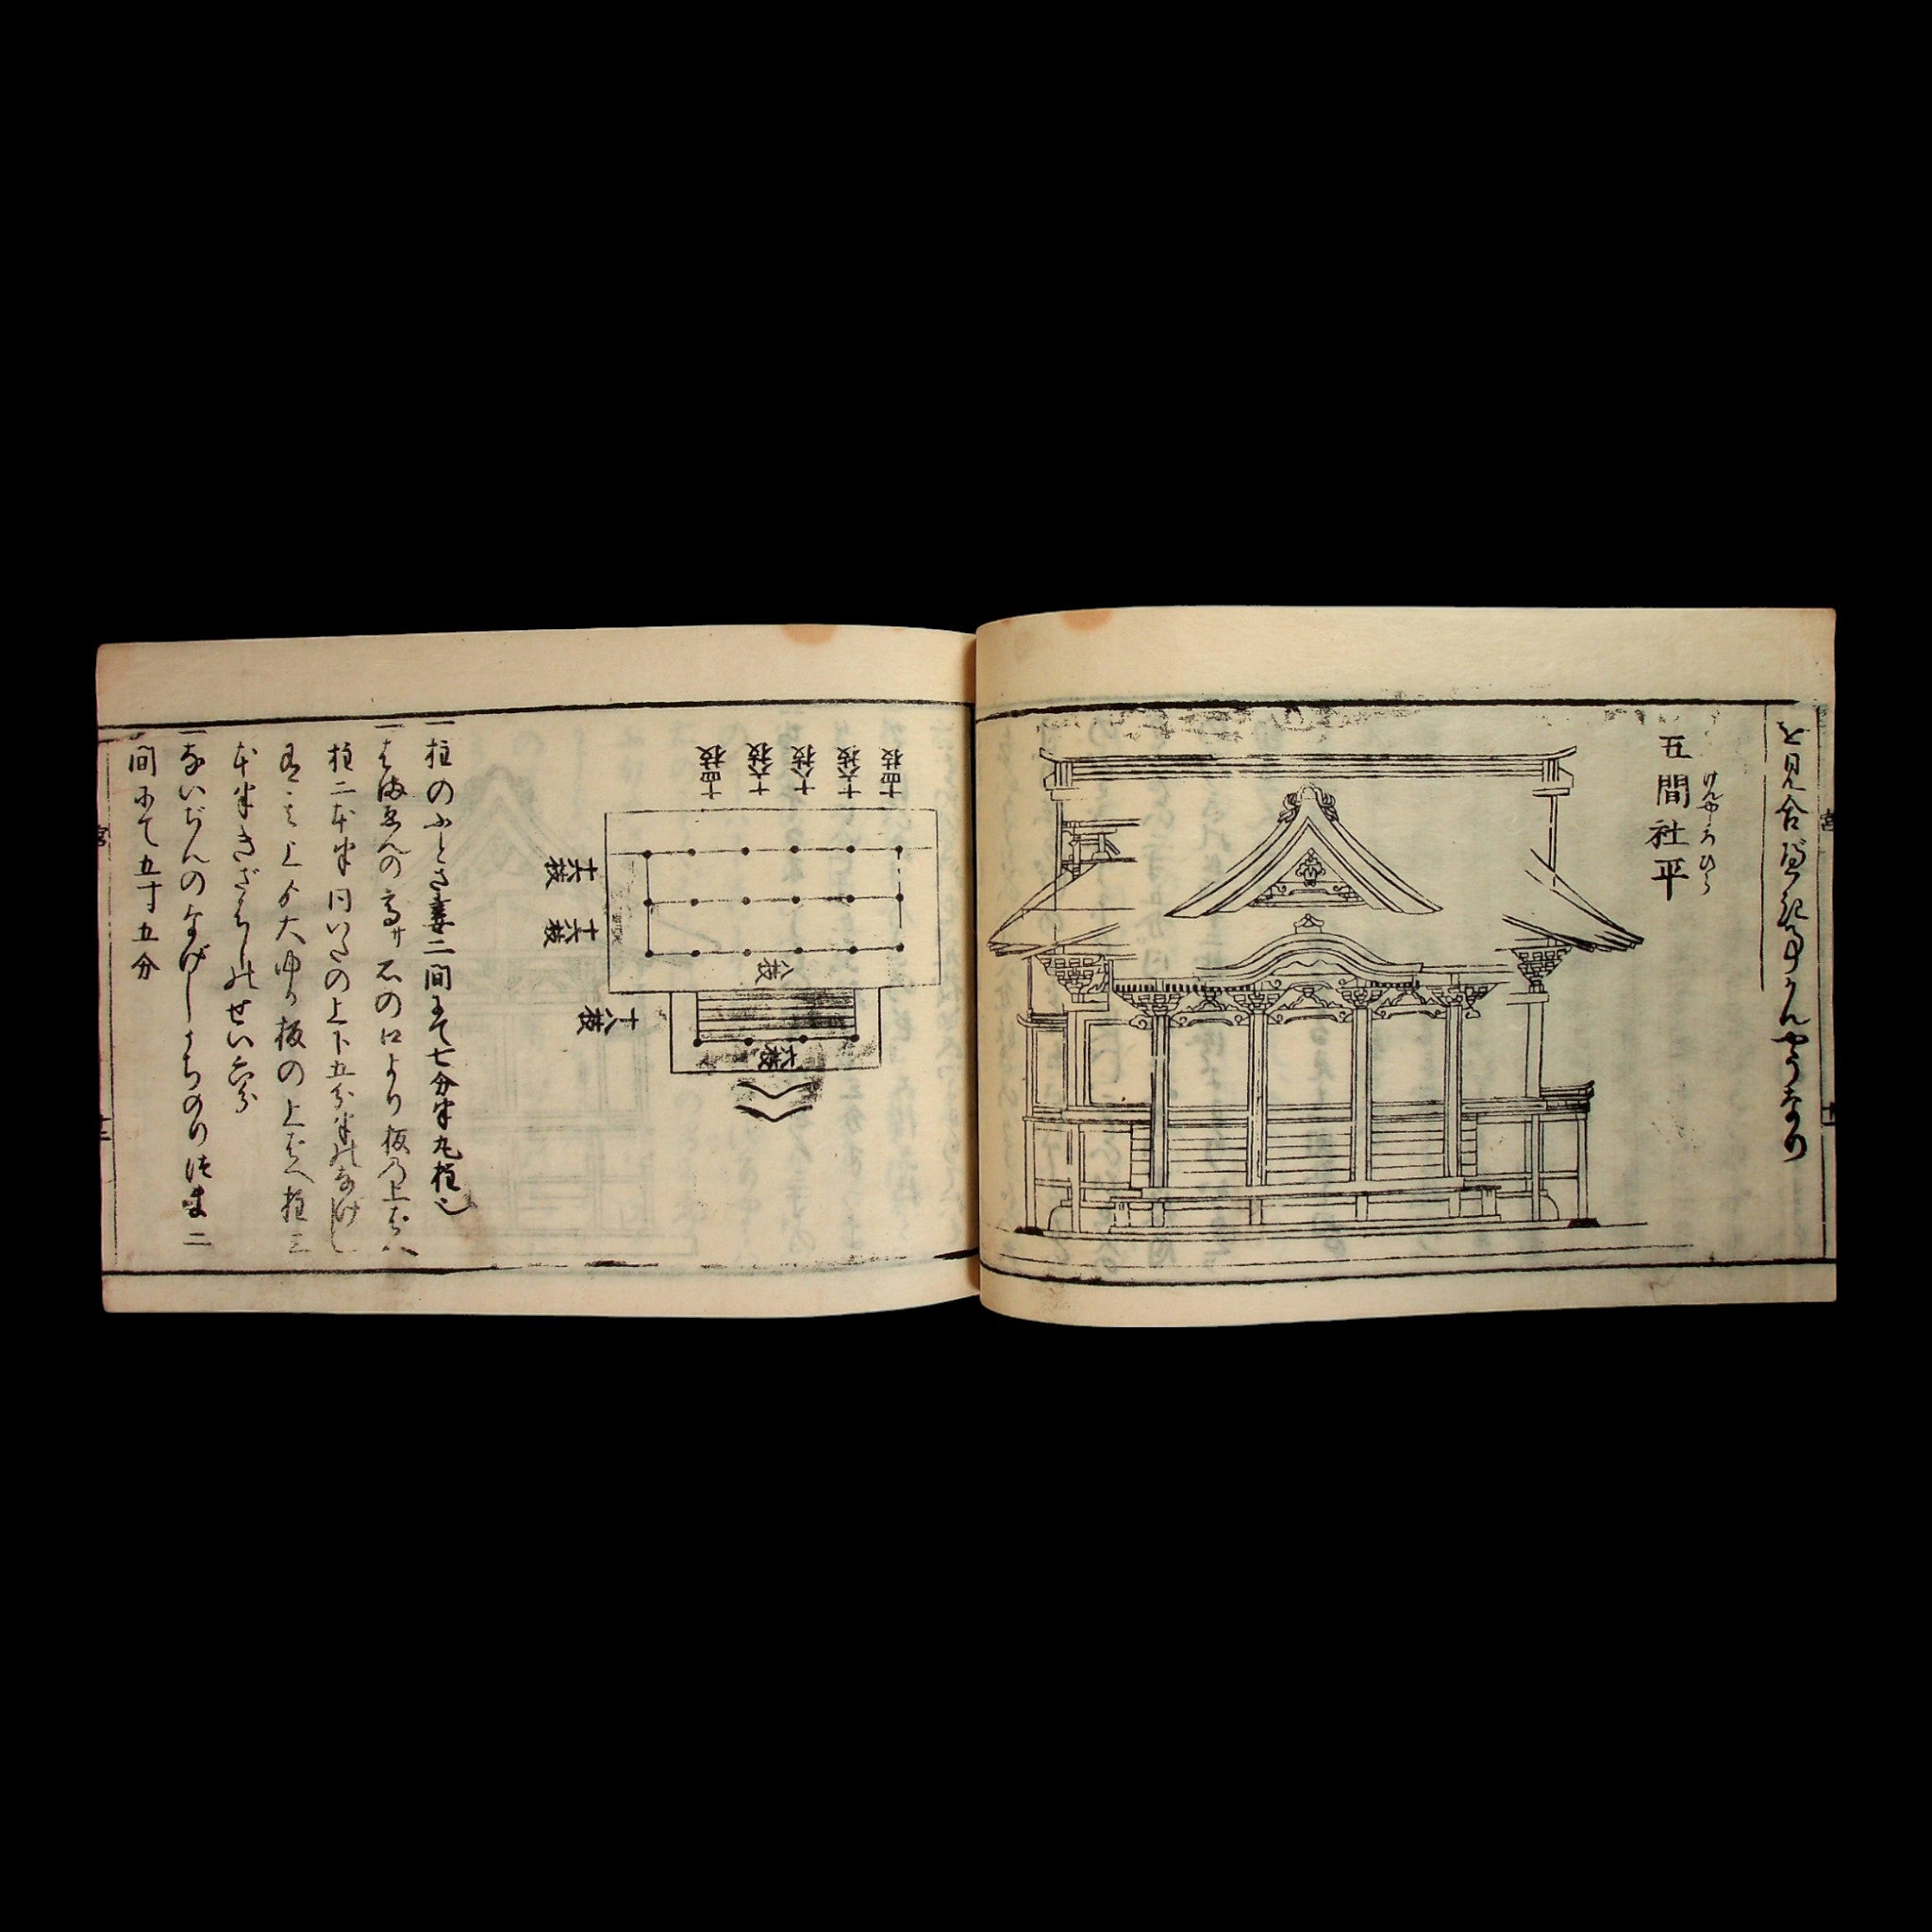 を見合
五間社平
けんやしろひら
十四枝
十六枝
十八枝
十六枝
十四枝
十六枝
十六枝
八枝
十八枝
六枝
一柱のふとさ妻二間にて七分半丸柱也
一はまゑんの高サ石の口より板の上ばへ
柱二本半同いたの上下五分半のなげし
大ゆか板の上ばへ柱三
本半きざはしのせい六分
一ないぢんのなげしうちのり
間にて五寸五分
宮
宮